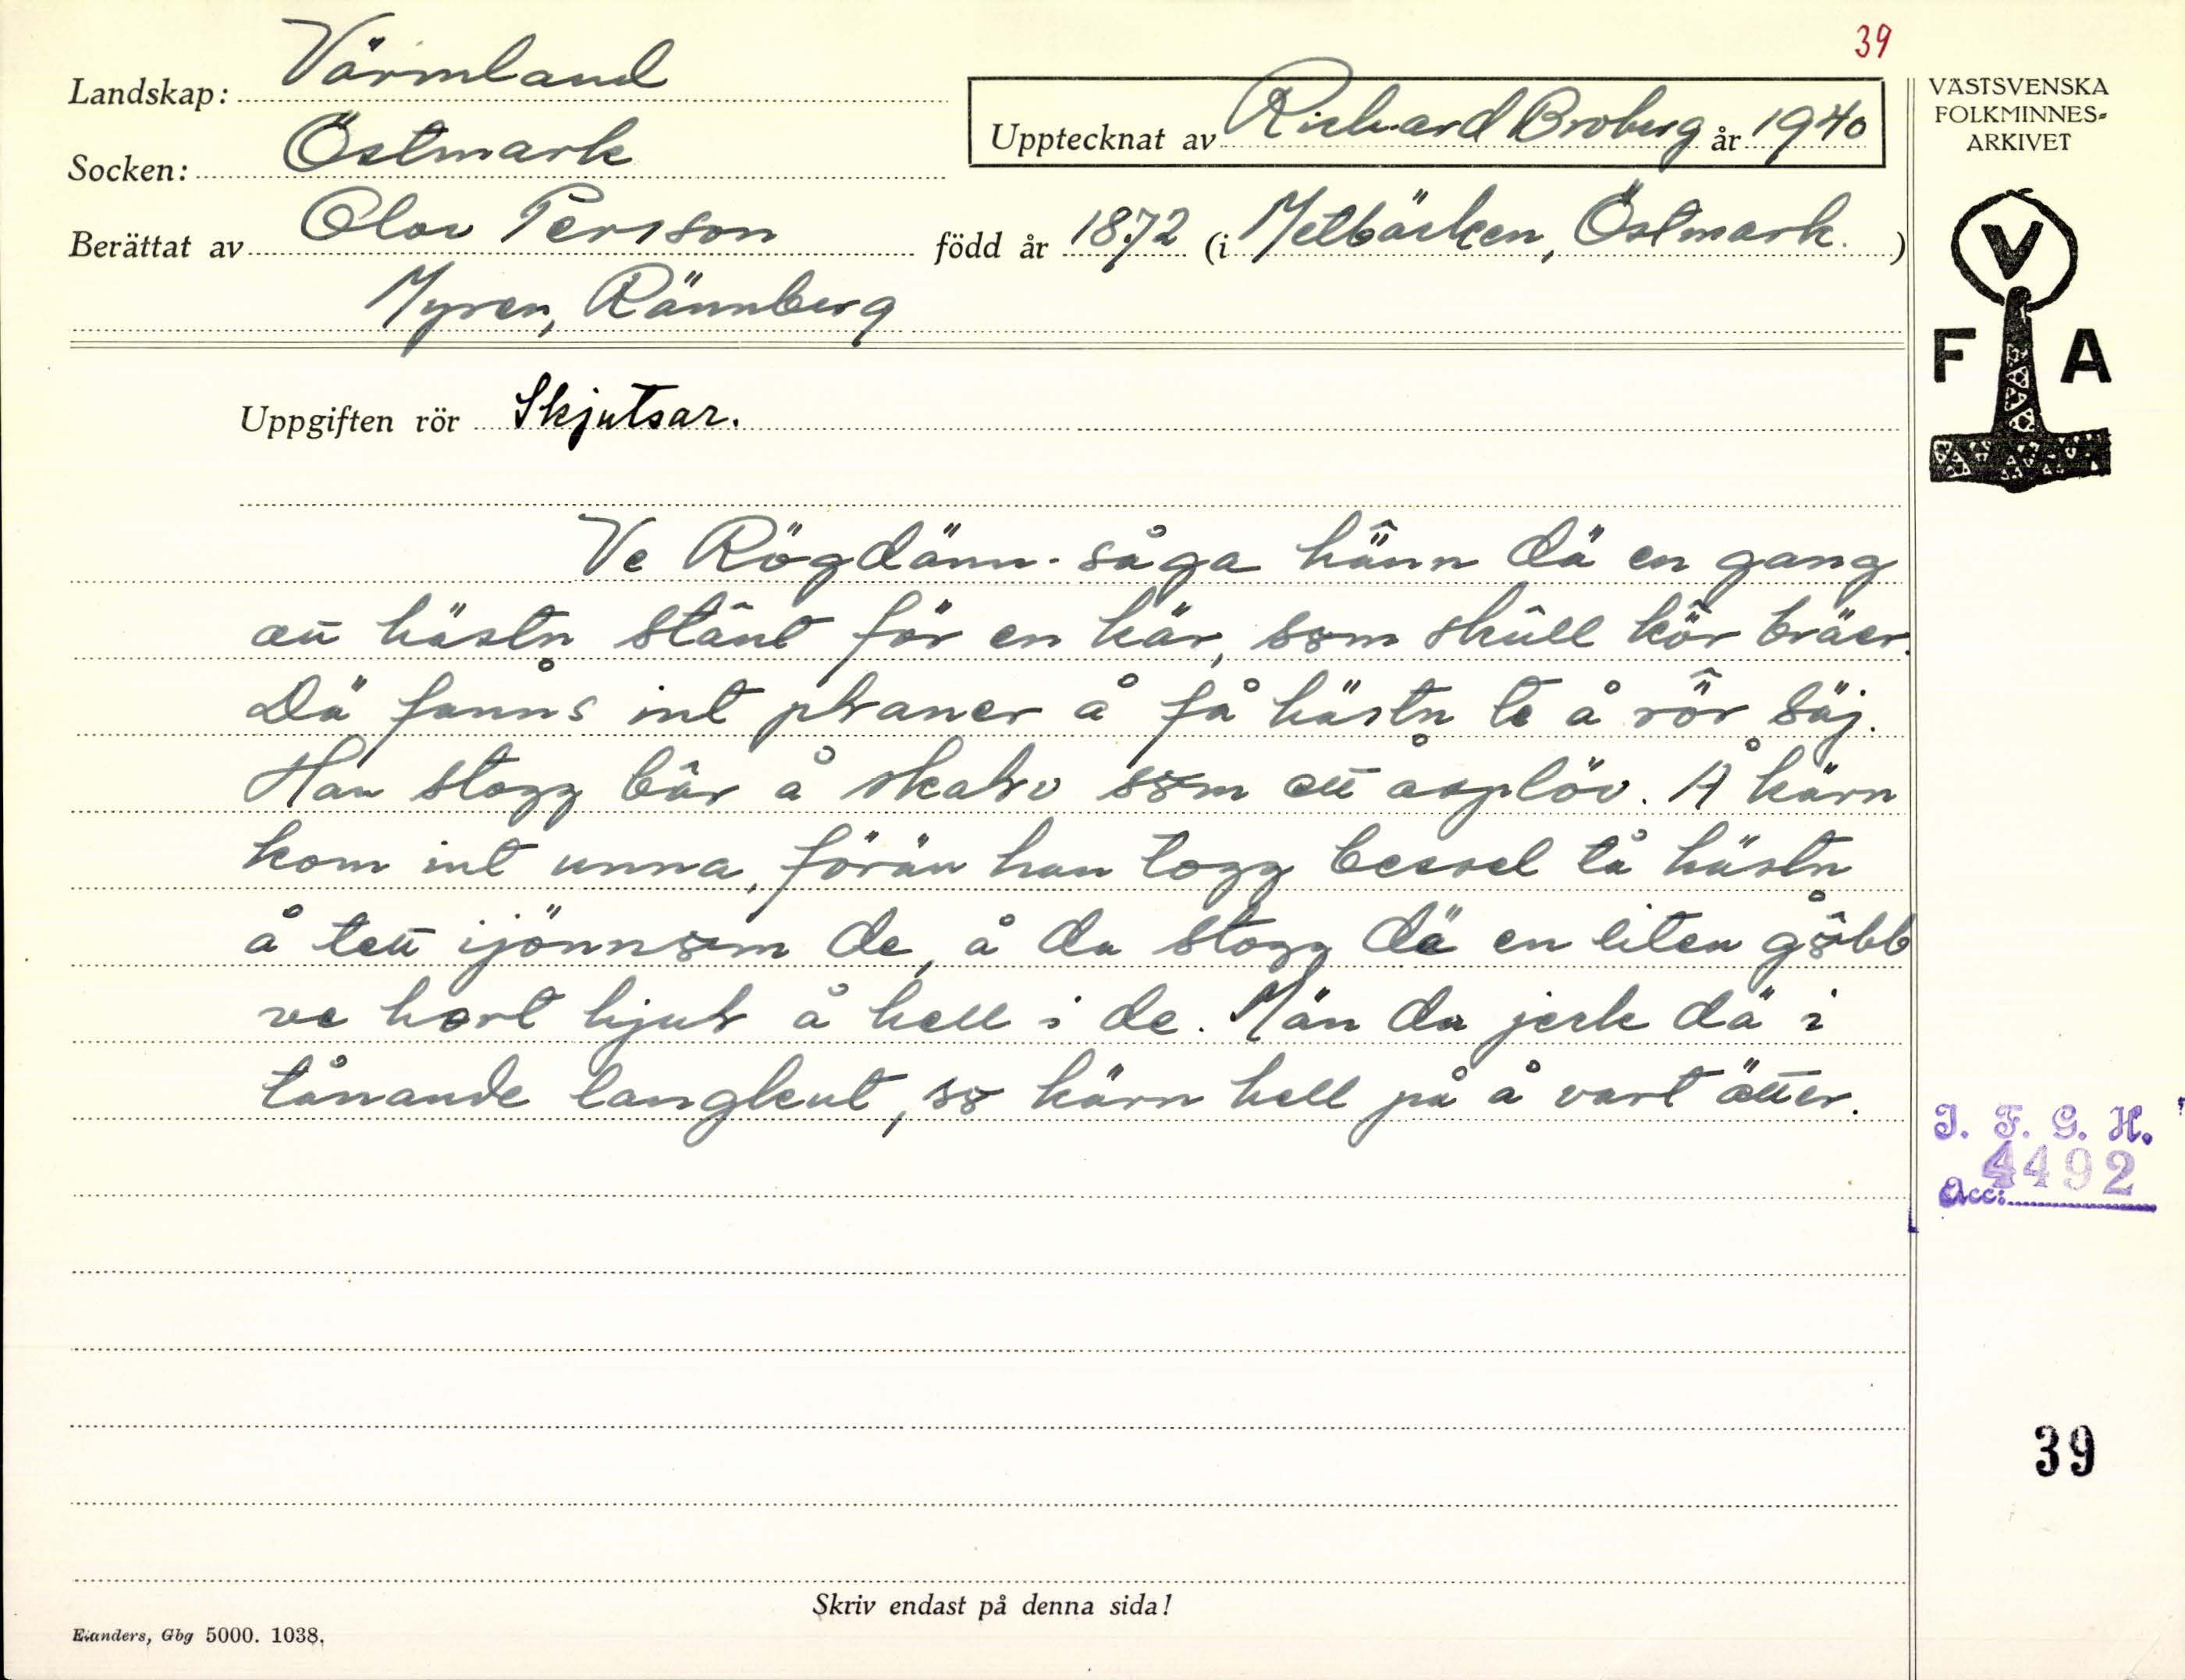 39
Landskap: Värmland
Upptecknat av Richard Broberg år 1940
Socken: Östmark
Berättat av Olov Persson född år 1872 (i Metbäcken, Östmark.)
Myren, Rännberg
VÄSTSVENSKA
FOLKMINNES-
ARKIVET
V
F A
Uppgiften rör Skjutsar.
Ve Rögdänn-såga hänn dä en gang
att hästn stânt för en kär, som skûll kör bräer.
Dä fanns int plraner å få hästn te å rör säj.
Han stogg bâr å skalrv som ett åsplöv. Å kärn
kom int unna, förän han togg bessel tå hästn
å tett ijönnom de, å da stogg dä en liten gôbb
ve hart hjulr å hell i de. Män da jerk dä i
tånande langkut, so kärn hell på å vart ätter.
I. F. G. H.
Acc: 4492
39
Skriv endast på denna sida!
Elanders, Gbg 5000. 1038.